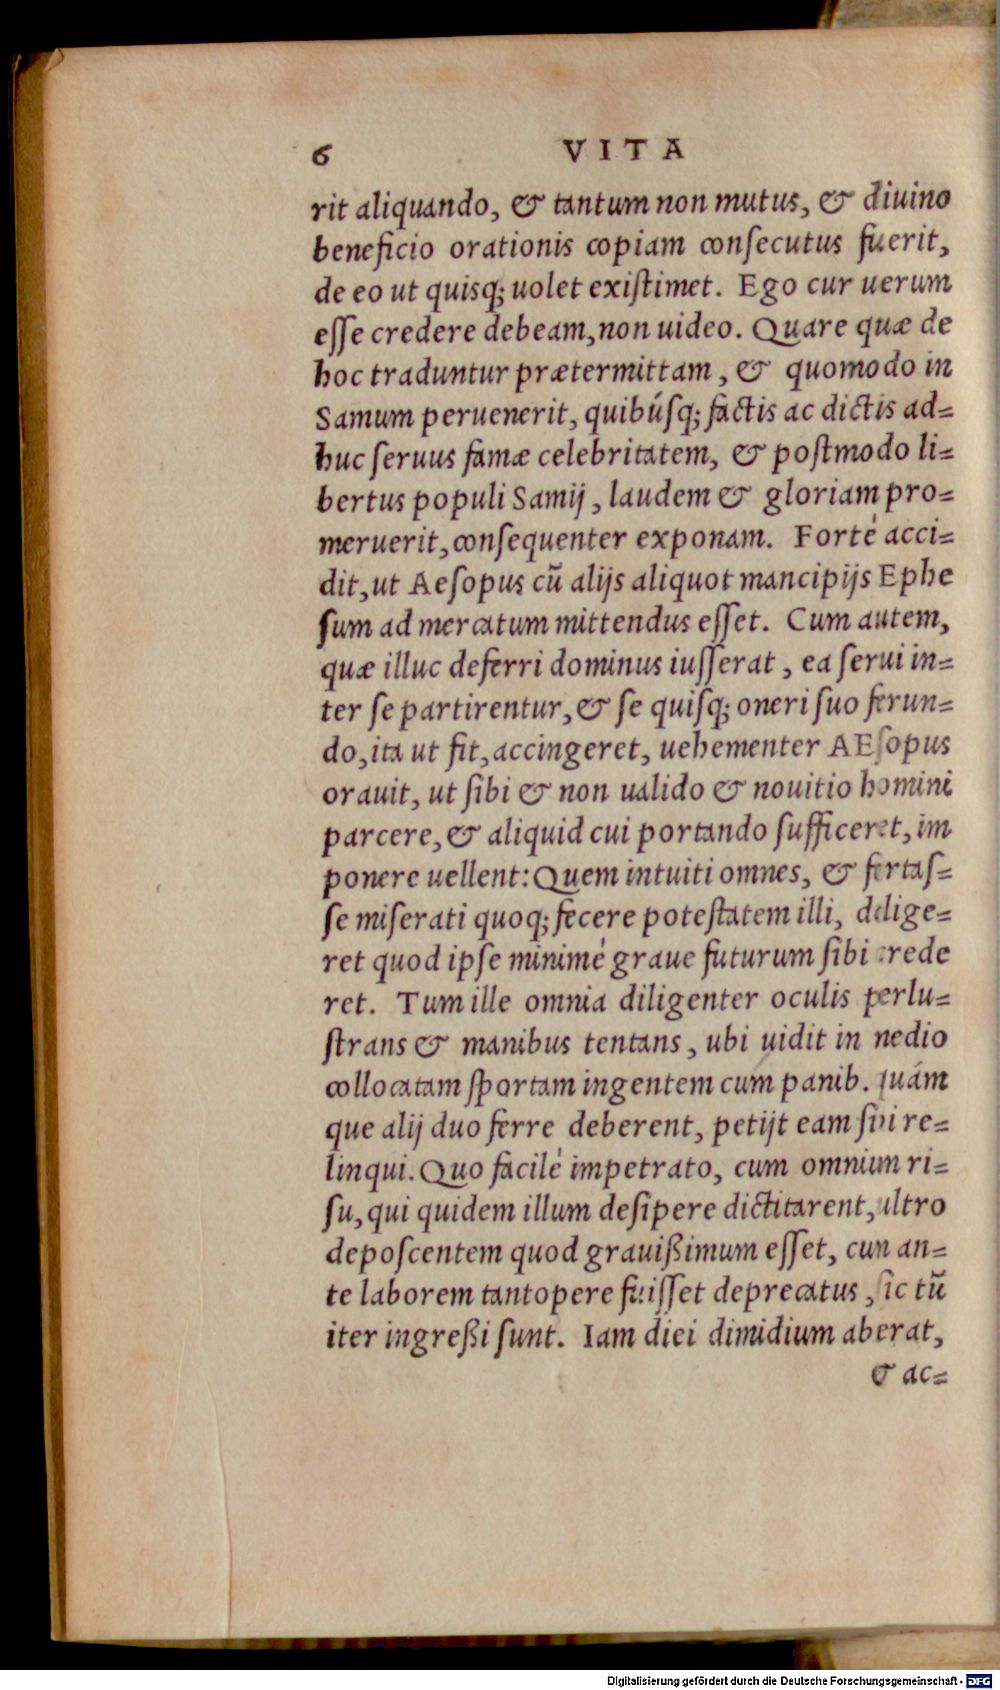 6 VITA
rit aliquando, & tantum non mutus, & diuino
beneficio orationis copiam conſecutus fuerit,
de eo ut quisq; uolet exiſtimet. Ego cur uerum
eſſe credere debeam, non uideo. Quare quæ de
hoc traduntur prætermittam, & quomodo in
Samum peruenerit, quibúſq; factis ac dictis ad=
huc ſeruus famæ celebritatem, & poſtmodo li=
bertus populi Samij, laudem & gloriam pro=
meruerit, conſequenter exponam. Forté acci=
dit, ut Aeſopus cũ alijs aliquot mancipijs Ephe
ſum ad mercatum mittendus eſſet. Cum autem,
quæ illuc deferri dominus iuſſerat, ea ſerui in=
ter ſe partirentur, & ſe quiſq; oneri ſuo ferun=
do, ita ut fit, accingeret, uehementer AEſopus
orauit, ut ſibi & non ualido & nouitio homini
parcere, & aliquid cui portando ſufficeret, im
ponere uellent: Quem intuiti omnes, & fertaſ=
ſe miſerati quoq; fecere poteſtatem illi, delige=
ret quod ipſe minimé graue futurum ſibi crede
ret. Tum ille omnia diligenter oculis perlu=
ſtrans & manibus tentans, ubi uidit in nedio
collocatam ſportam ingentem cum panib. quám
que alij duo ferre deberent, petijt eam ſibi re=
linqui. Quo facilé impetrato, cum omnium ri=
ſu, qui quidem illum deſipere dictitarent, ultro
depoſcentem quod grauißimum eſſet, cun an=
te laborem tantopere fuiſſet deprecatus, ſic tũ
iter ingreßi ſunt. Iam diei dimidium aberat,
& ac=
Digitalisierung gefördert durch die Deutsche Forschungsgemeinschaft - DFG